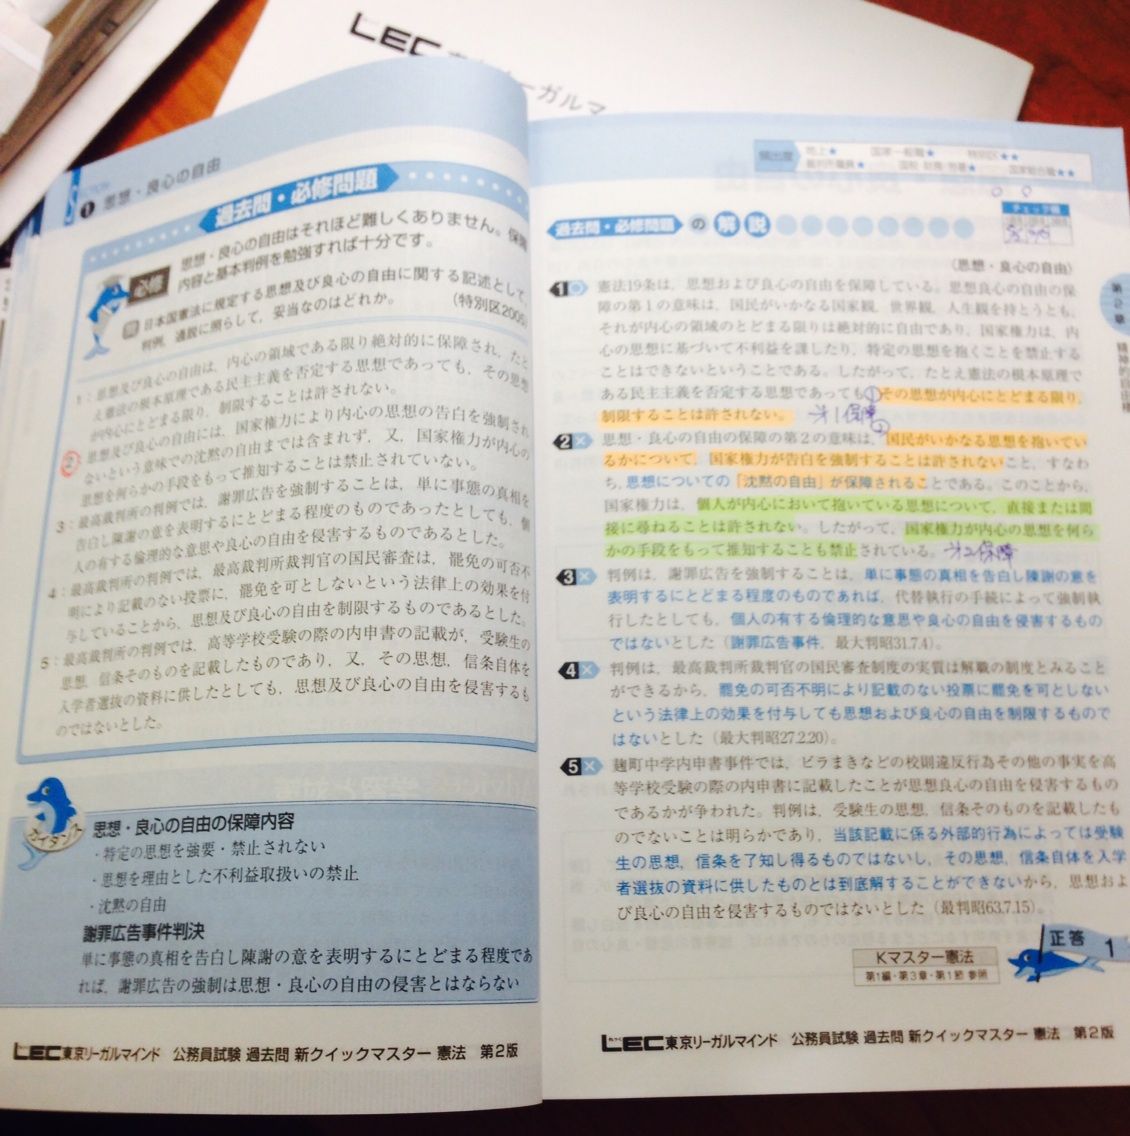 LEC東京リーガルマ
❶ 思想・良心の自由
過去問・必修問題
思想・良心の自由はそれほど難しくありません。保障
内容と基本判例を勉強すれば十分です。
必修
問 日本国憲法に規定する思想及び良心の自由に関する記述として，
判例，通説に照らして，妥当なのはどれか。　（特別区2005）
1：思想及び良心の自由は，内心の領域である限り絶対的に保障され，たと
え憲法の根本原理である民主主義を否定する思想であっても，その思想
が内心にとどまる限り，制限することは許されない。
2：思想及び良心の自由には，国家権力により内心の思想の告白を強制され
ないという意味での沈黙の自由までは含まれず，又，国家権力が内心の
思想を何らかの手段をもって推知することは禁止されていない。
3：最高裁判所の判例では，謝罪広告を強制することは，単に事態の真相を
告白し陳謝の意を表明するにとどまる程度のものであったとしても，個
人の有する倫理的な意思や良心の自由を侵害するものであるとした。
4：最高裁判所の判例では，最高裁判所裁判官の国民審査は，罷免の可否不
明により記載のない投票に，罷免を可としないという法律上の効果を付
与していることから，思想及び良心の自由を制限するものであるとした。
5：最高裁判所の判例では，高等学校受験の際の内申書の記載が，受験生の
思想，信条そのものを記載したものであり，又，その思想，信条自体を
入学者選抜の資料に供したとしても，思想及び良心の自由を侵害するも
のではないとした。
ガイダンス
思想・良心の自由の保障内容
・特定の思想を強要・禁止されない
・思想を理由とした不利益取扱いの禁止
・沈黙の自由
謝罪広告事件判決
単に事態の真相を告白し陳謝の意を表明するにとどまる程度であ
れば，謝罪広告の強制は思想・良心の自由の侵害とはならない
LEC東京リーガルマインド　公務員試験 過去問 新クイックマスター 憲法　第2版
頻出度 地上★ 国家一般職★ 特別区★★
裁判所職員★ 国税・財務・労基★ 国家総合職★★
チェック欄
過去問・必修問題 の 解説
〈思想・良心の自由〉
1○ 憲法19条は，思想および良心の自由を保障している。思想良心の自由の保
障の第1の意味は，国民がいかなる国家観，世界観，人生観を持とうとも，
それが内心の領域のとどまる限りは絶対的に自由であり，国家権力は，内
心の思想に基づいて不利益を課したり，特定の思想を抱くことを禁止する
ことはできないということである。したがって，たとえ憲法の根本原理で
ある民主主義を否定する思想であっても①その思想が内心にとどまる限り，
制限することは許されない。 第1保障
2× 思想・良心の自由の保障の第2の意味は，②国民がいかなる思想を抱いてい
るかについて，国家権力が告白を強制することは許されないこと，すなわ
ち，思想についての「沈黙の自由」が保障されることである。このことから，
国家権力は，個人が内心において抱いている思想について，直接または間
接に尋ねることは許されない。したがって，国家権力が内心の思想を何ら
かの手段をもって推知することも禁止されている。 第2保障
3× 判例は，謝罪広告を強制することは，単に事態の真相を告白し陳謝の意を
表明するにとどまる程度のものであれば，代替執行の手続によって強制執
行したとしても，個人の有する倫理的な意思や良心の自由を侵害するもの
ではないとした（謝罪広告事件，最大判昭31.7.4）。
4× 判例は，最高裁判所裁判官の国民審査制度の実質は解職の制度とみること
ができるから，罷免の可否不明により記載のない投票に罷免を可としない
という法律上の効果を付与しても思想および良心の自由を制限するもので
はないとした（最大判昭27.2.20）。
5× 麹町中学内申書事件では，ビラまきなどの校則違反行為その他の事実を高
等学校受験の際の内申書に記載したことが思想良心の自由を侵害するもの
であるかが争われた。判例は，受験生の思想，信条そのものを記載したも
のでないことは明らかであり，当該記載に係る外部的行為によっては受験
生の思想，信条を了知し得るものではないし，その思想，信条自体を入学
者選抜の資料に供したものとは到底解することができないから，思想およ
び良心の自由を侵害するものではないとした（最判昭63.7.15）。
正答 1
Kマスター憲法
第1編・第3章・第1節 参照
第2章 精神的自由権
LEC東京リーガルマインド　公務員試験 過去問 新クイックマスター 憲法　第2版